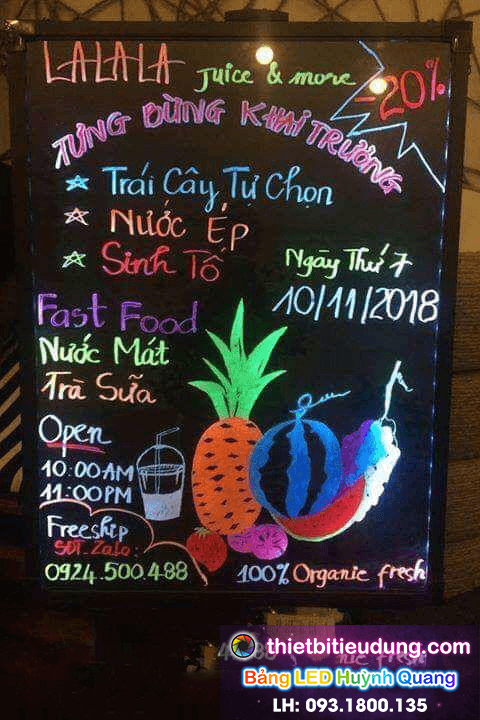 LALALA Juice & more -20%
TƯNG BỪNG KHAI TRƯƠNG
Trái Cây Tự Chọn
Nước Ép
Sinh Tố
Ngày Thứ 7
10/11/2018
Fast Food
Nước Mát
Trà Sữa
Open
10:00AM
11:00PM
Freeship
SĐT.Zalo:
0924.500.488
100% Organic fresh
thietbitieudung.com
Bảng LED Huỳnh Quang
LH: 093.1800.135